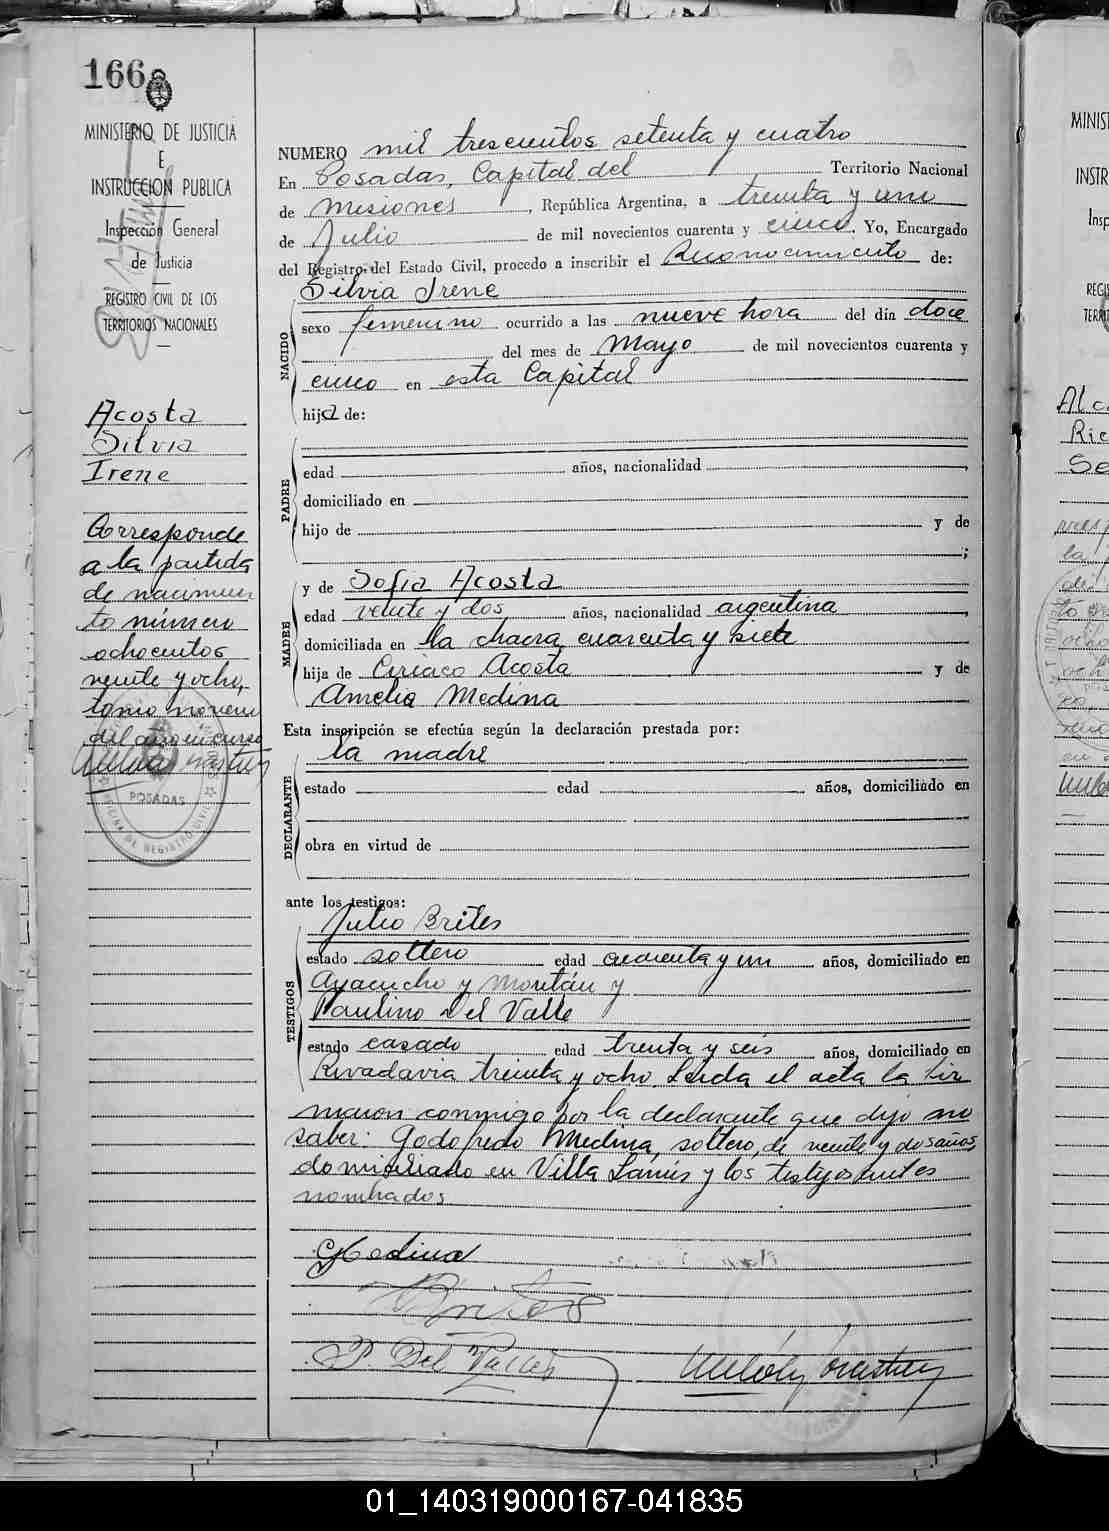 166
MINISTERIO DE JUSTICIA
E
INSTRUCCION PUBLICA
Inspección General
de Justicia
REGISTRO CIVIL DE LOS
TERRITORIOS NACIONALES
Acosta
Silvia
Irene
Corresponde
a la partida
de nacimien
to número
ochocientos
veinte y ocho,
tomo noveno
del año en curso
POSADAS
OFICINA DE REGISTRO CIVIL
NUMERO mil trescientos setenta y cuatro
En Posadas, Capital del Territorio Nacional
de Misiones, República Argentina, a treinta y uno
de Julio de mil novecientos cuarenta y cinco, Yo, Encargado
del Registro del Estado Civil, procedo a inscribir el Reconocimiento de:
Silvia Irene
NACIDO
sexo femenino ocurrido a las nueve hora del día doce
del mes de Mayo de mil novecientos cuarenta y
cinco en esta Capital
hija de:
PADRE
edad años, nacionalidad ,
domiciliado en
hijo de y de
;
MADRE
y de Sofia Acosta
edad veinte y dos años, nacionalidad argentina ,
domiciliada en la chacra cuarenta y siete
hija de Ciriaco Acosta y de
Amelia Medina
Esta inscripción se efectúa según la declaración prestada por:
la madre
DECLARANTE
estado edad años, domiciliado en
obra en virtud de
ante los testigos:
Julio Brites
TESTIGOS
estado soltero edad cuarenta y un años, domiciliado en
Ayacucho y Moritán y
Paulino Del Valle
estado casado edad treinta y seis años, domiciliado en
Rivadavia treinta y ocho. Leida el acta la fir
maron conmigo por la declarante que dijo no
saber: Godofredo Medina, soltero, de veinte y dos años,
domiciliado en Villa Lanús y los testigos antes
nombrados
GMedina
Brites
P. Del Valle
MINIS
INSTR
Insp
REGIS
TERRIT
Alc
Ric
Se
01_140319000167-041835